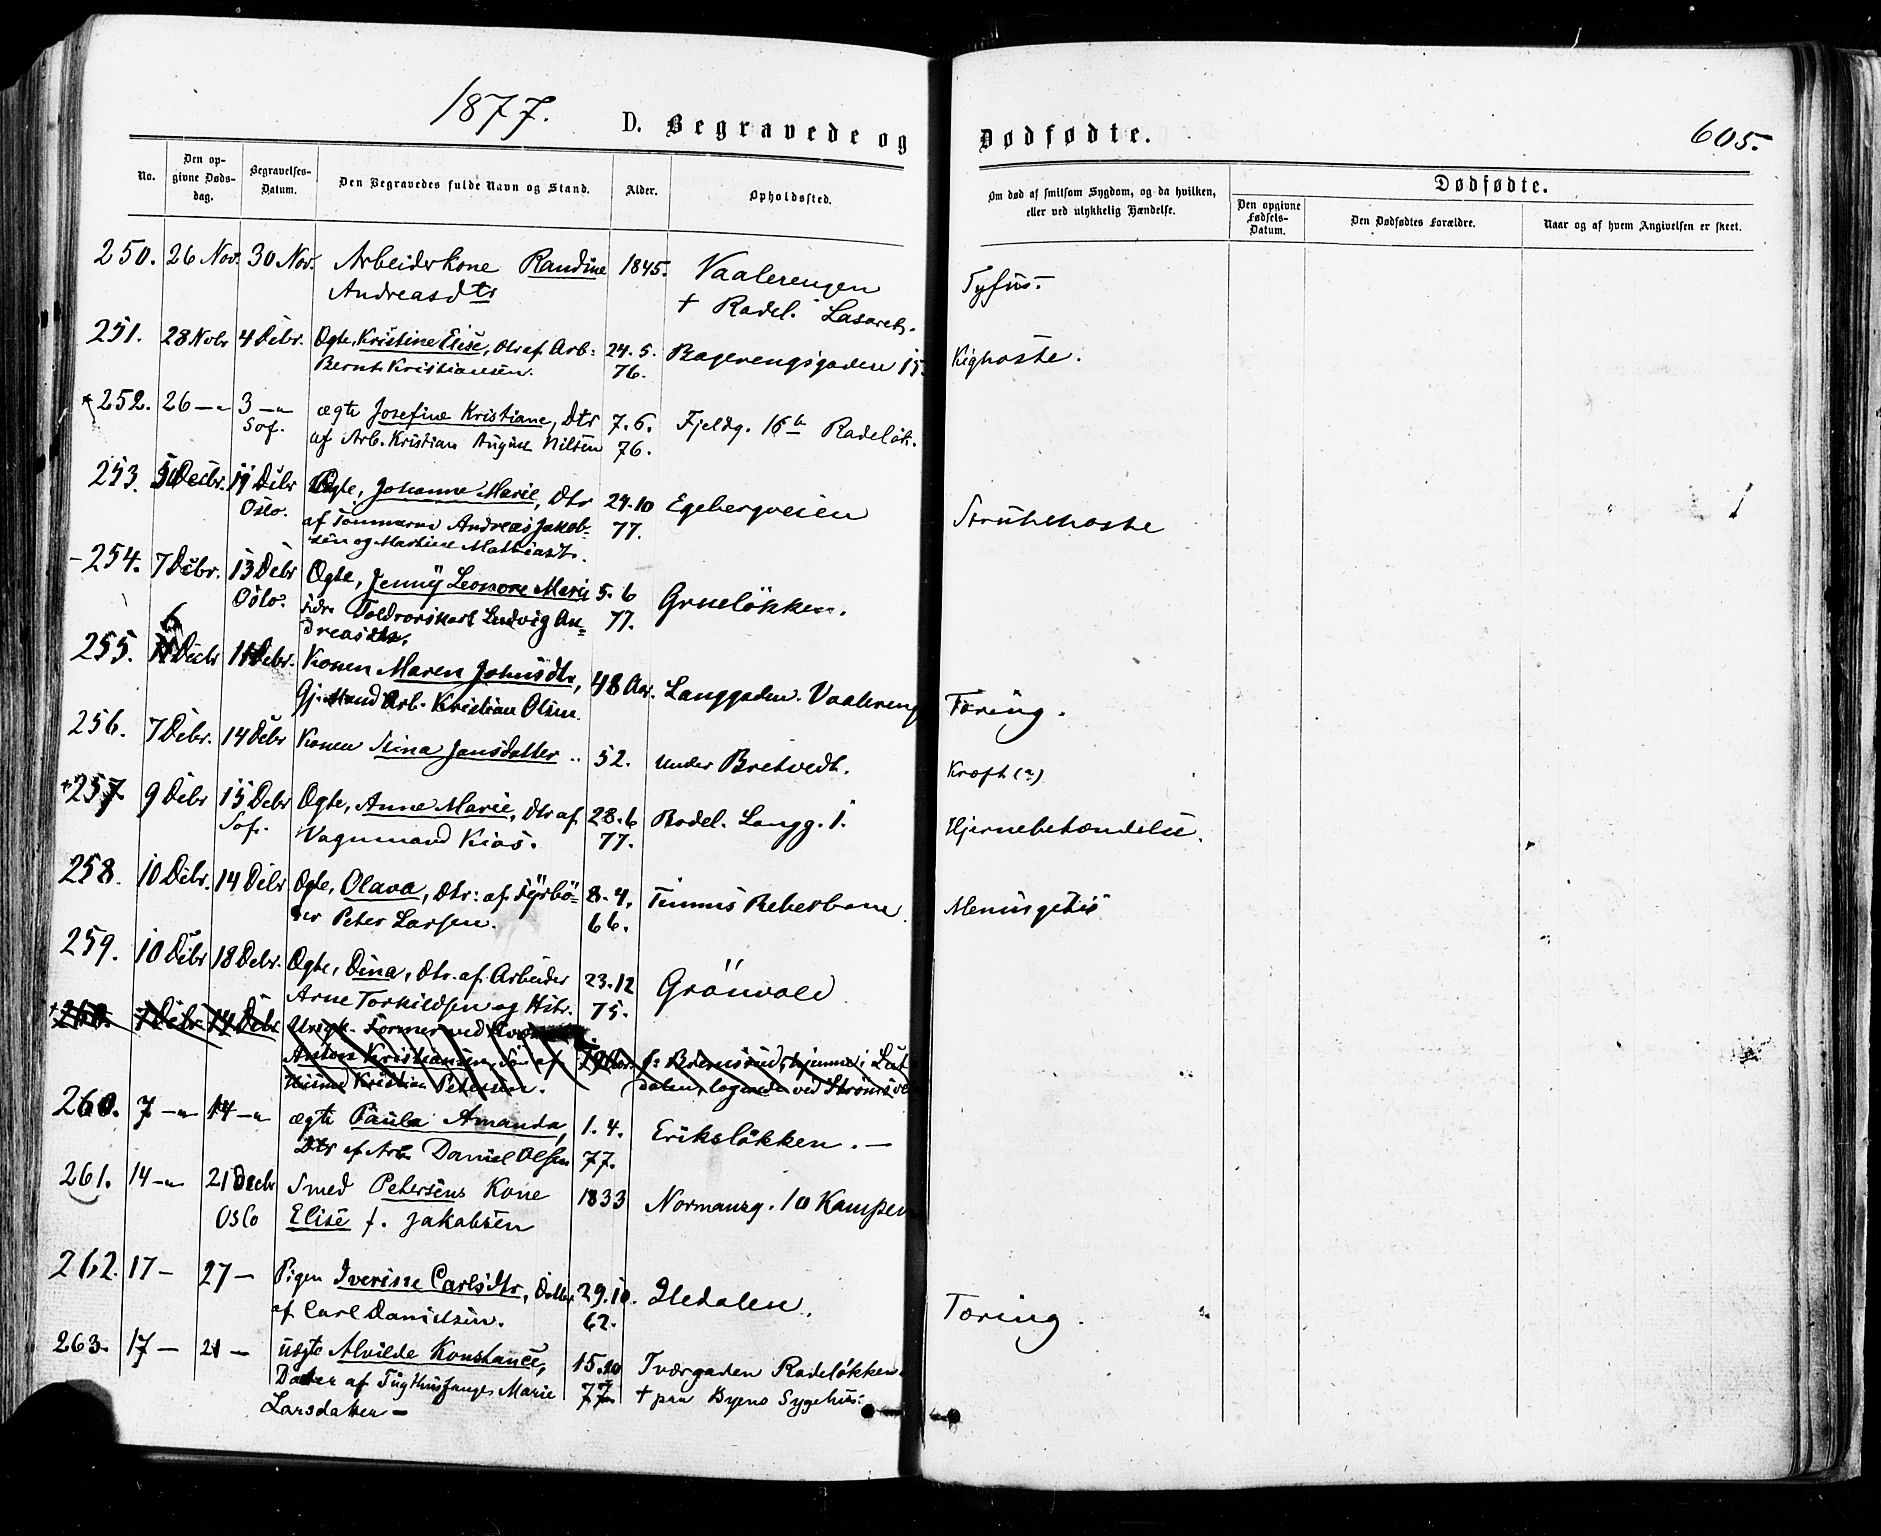 1877.
D. Begravede og Dødfødte.
605.
No.
Den opgivne Dødsdag.
Begravelses-Datum.
Den Begravedes fulde Navn og Stand.
Alder.
Opholdssted.
Om død af smitsom Sygdom, og da hvilken, eller ved ulykkelig Hændelse.
Dødfødte.
Den opgivne Fødsels-Datum.
Den Dødfødtes Forældre.
Naar og af hvem Angivelsen er skeet.
250. 26 Nov. 30 Nov. Arbeiderkone Randine 1845. Vaalerengen Tyfus.
Andreasdtr + Rodel. Lasareth.
251. 28 Nobr 4 Debr. Ægte, Kristine Elise, Dtr af Arb: 24.5. Bagerengsgaden 15. Kighoste.
Bernt Kristiansen. 76.
252. 26 — 3 — ægte Josefine Kristiane, Dtr 7.6. Fjeldg. 16 b Rodeløk.
Sof. af Arb. Kristian August Nilsen 76.
253. Decbr. 11 Debr Ægte, Johanne Marie, Dtr 29.10 Egebergveien Strubehoste
Oslo. af Tømmerm Andreas Jakob- 77.
sen og Martine Mathiasdt.
254. 7 Debr. 13 Debr Ægte, Jenny Leonore Marie 5.6 Grueløkken.
Oslo. Ludvig An- 77.
dreas
255. 6 Decbr 11 Debr. Konen Maren Johnsdtr, 48 Aar. Langgaden. Vaalereng Tæring.
Gj. Mand Arb. Kristian Olsen.
256. 7 Debr. 14 Debr Konen Stina Jansdatter .. 52. under Bretvedt. Kræft (?)
257 9 Debr 15 Debr Ægte, Anne Marie, Dtr af 28.6 Rodel. Langg. 1. Hjernebetændelse.
Sof. Vognmand Kiøs. 77.
258. 10 Debr. 14 Debr Ægte, Olava, Dtr: af Fyrbø- 8.4. Tinnus Reberbane Meningetis
der Peter Larsen. 66.
259. 10 Debr 18 Debr. Ægte, Dina, Dtr. af Arbeider 23.12 Grönvold
Arne Torkildsen og Hstr. 75.
260. 7 Debr 14 Debr Ungk. Former ved
Anton Kristiansen, Søn af hjemme i Lut
Kristian Petersen. dalen, logerede ved Strømsv
260. 7 — 14 — ægte Paula Amanda, 1.4. Eriksløkken. —
Dtr af Arb Daniel Olsen 77.
261. 14 — 21 Decbr Smed Petersens Kone 1833 Normansg. 10 Kampen
Oslo Elise f. Jakobsen
262. 17 — 27 — Pigen Iverine Carlsdtr, Datter 29.10. Iledalen. Tæring.
af Carl Danielsen. 62.
263. 17 — 21 — uægte Alvilde Konstance, 15.10 Tværgaden Rodeløkken
Datter af Tugthusfange Marie 77. + paa Byens Sygehus.
Larsdatter —